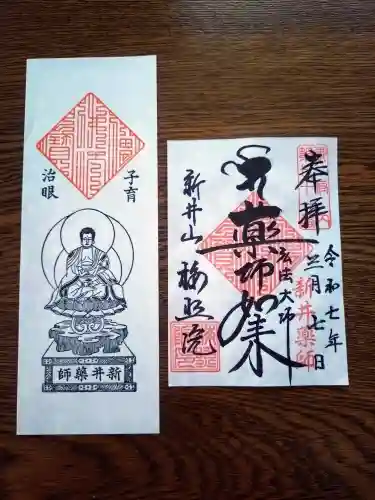 子育
治眼
新井薬師
奉拝
令和七年
三月七日
新井薬師
弘法大師
薬師如来
新井山 梅照院